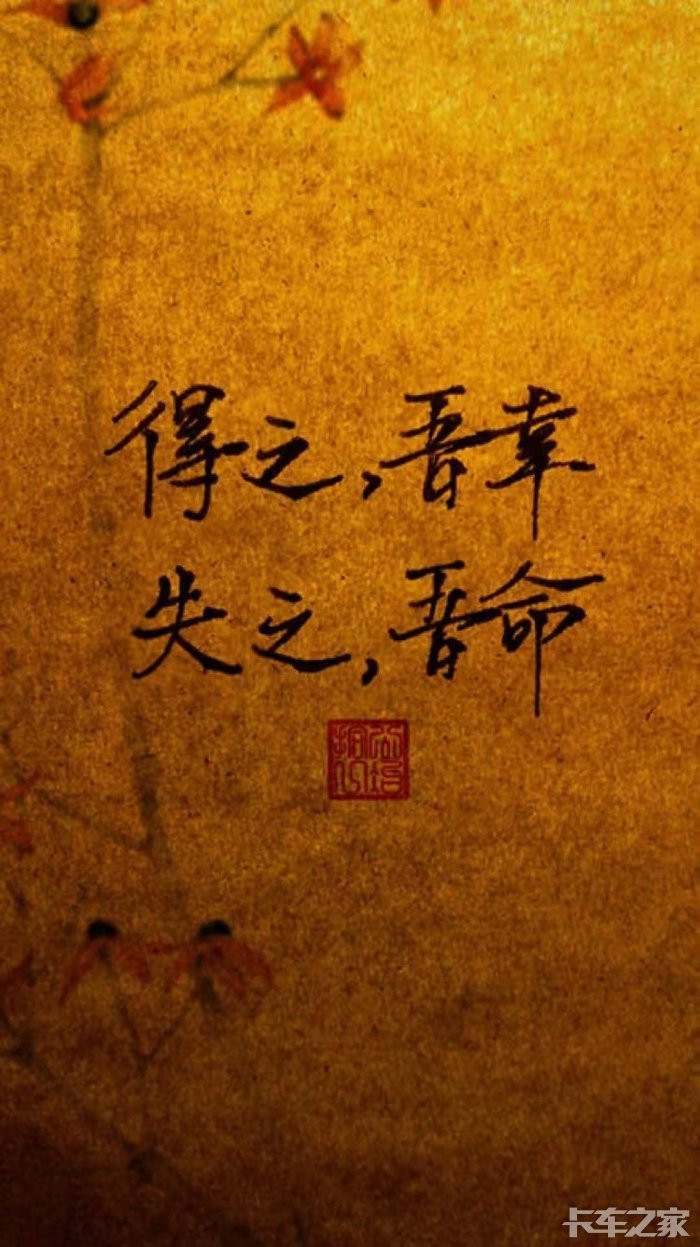 得之,吾幸
失之,吾命
卡车之家